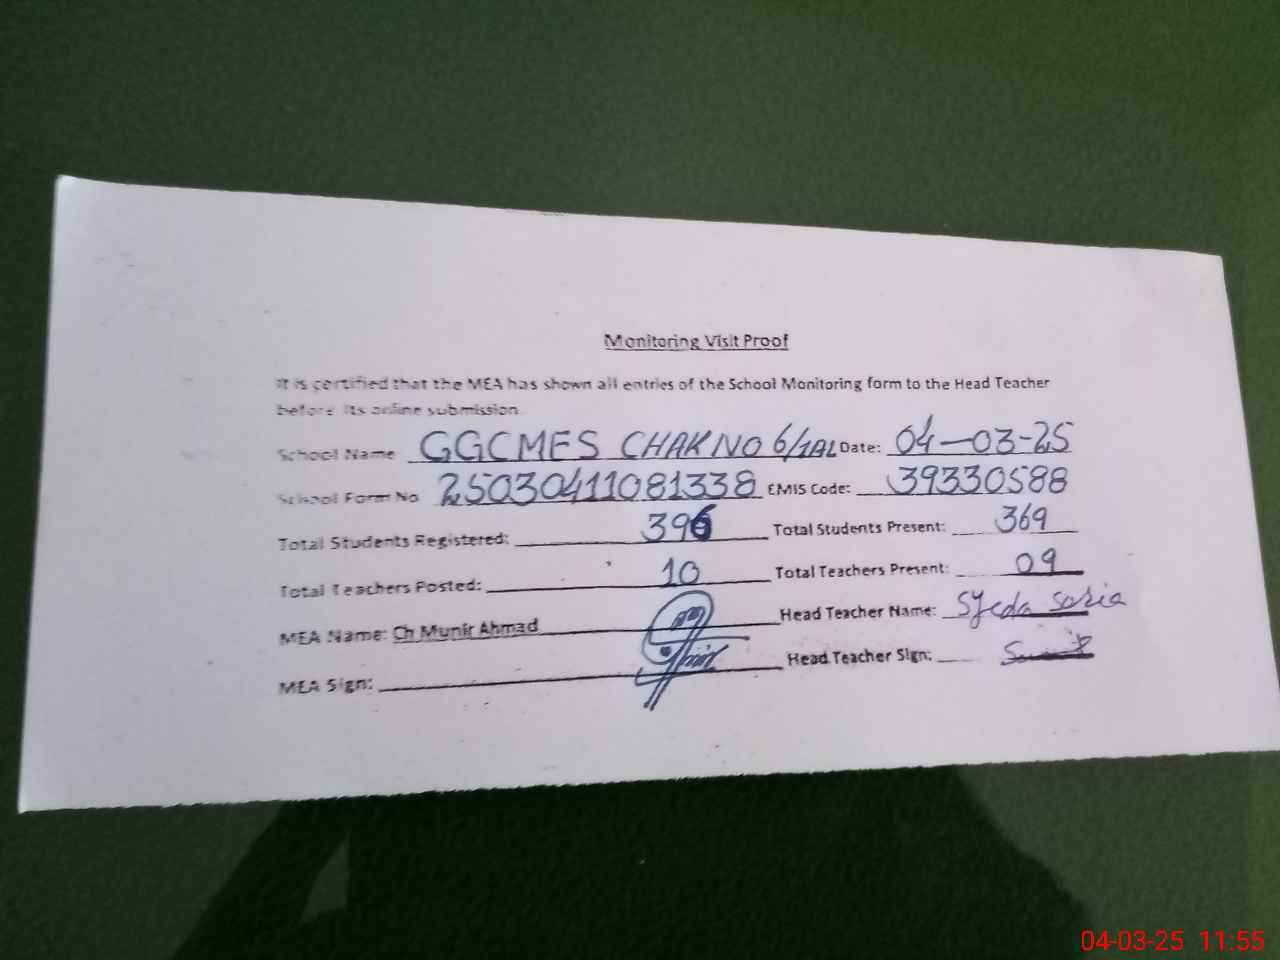 Monitoring Visit Proof
It is certified that the MEA has shown all entries of the School Monitoring form to the Head Teacher
before its online submission.
School Name GGCMES CHAK NO 6/1AL Date: 04-03-25
School Form No 25030411081338 EMIS Code: 39330588
Total Students Registered: 396 Total Students Present: 369
Total Teachers Posted: 10 Total Teachers Present: 09
MEA Name: Ch Munir Ahmad Head Teacher Name: Syeda
MEA Sign: Head Teacher Sign:
04-03-25 11:55